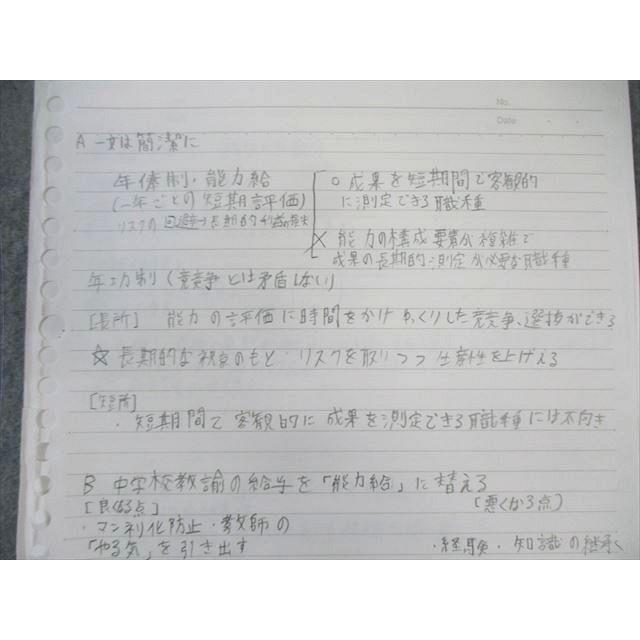 No.
Date
A 一文は簡潔に
年俸制・能力給
(一年ごとの短期評価)
リスクの回避→長期的利益の損失
○ 成果を短期間で客観的
に測定できる職種
× 能力の構成要素が複雑で
成果の長期的測定が必要な職種
年功制 (競争とは矛盾しない)
[長所] 能力の評価に時間をかけゆっくりした競争、選抜ができる
☆ 長期的な視点のもと・リスクを取りつつ生産性を上げる
[短所]
・短期間で客観的に成果を測定できる職種には不向き
B 中学校教諭の給与を「能力給」に替える
[良くなる点]
[悪くなる点]
・マンネリ化防止・教師の
「やる気」を引き出す
・経験・知識の継承